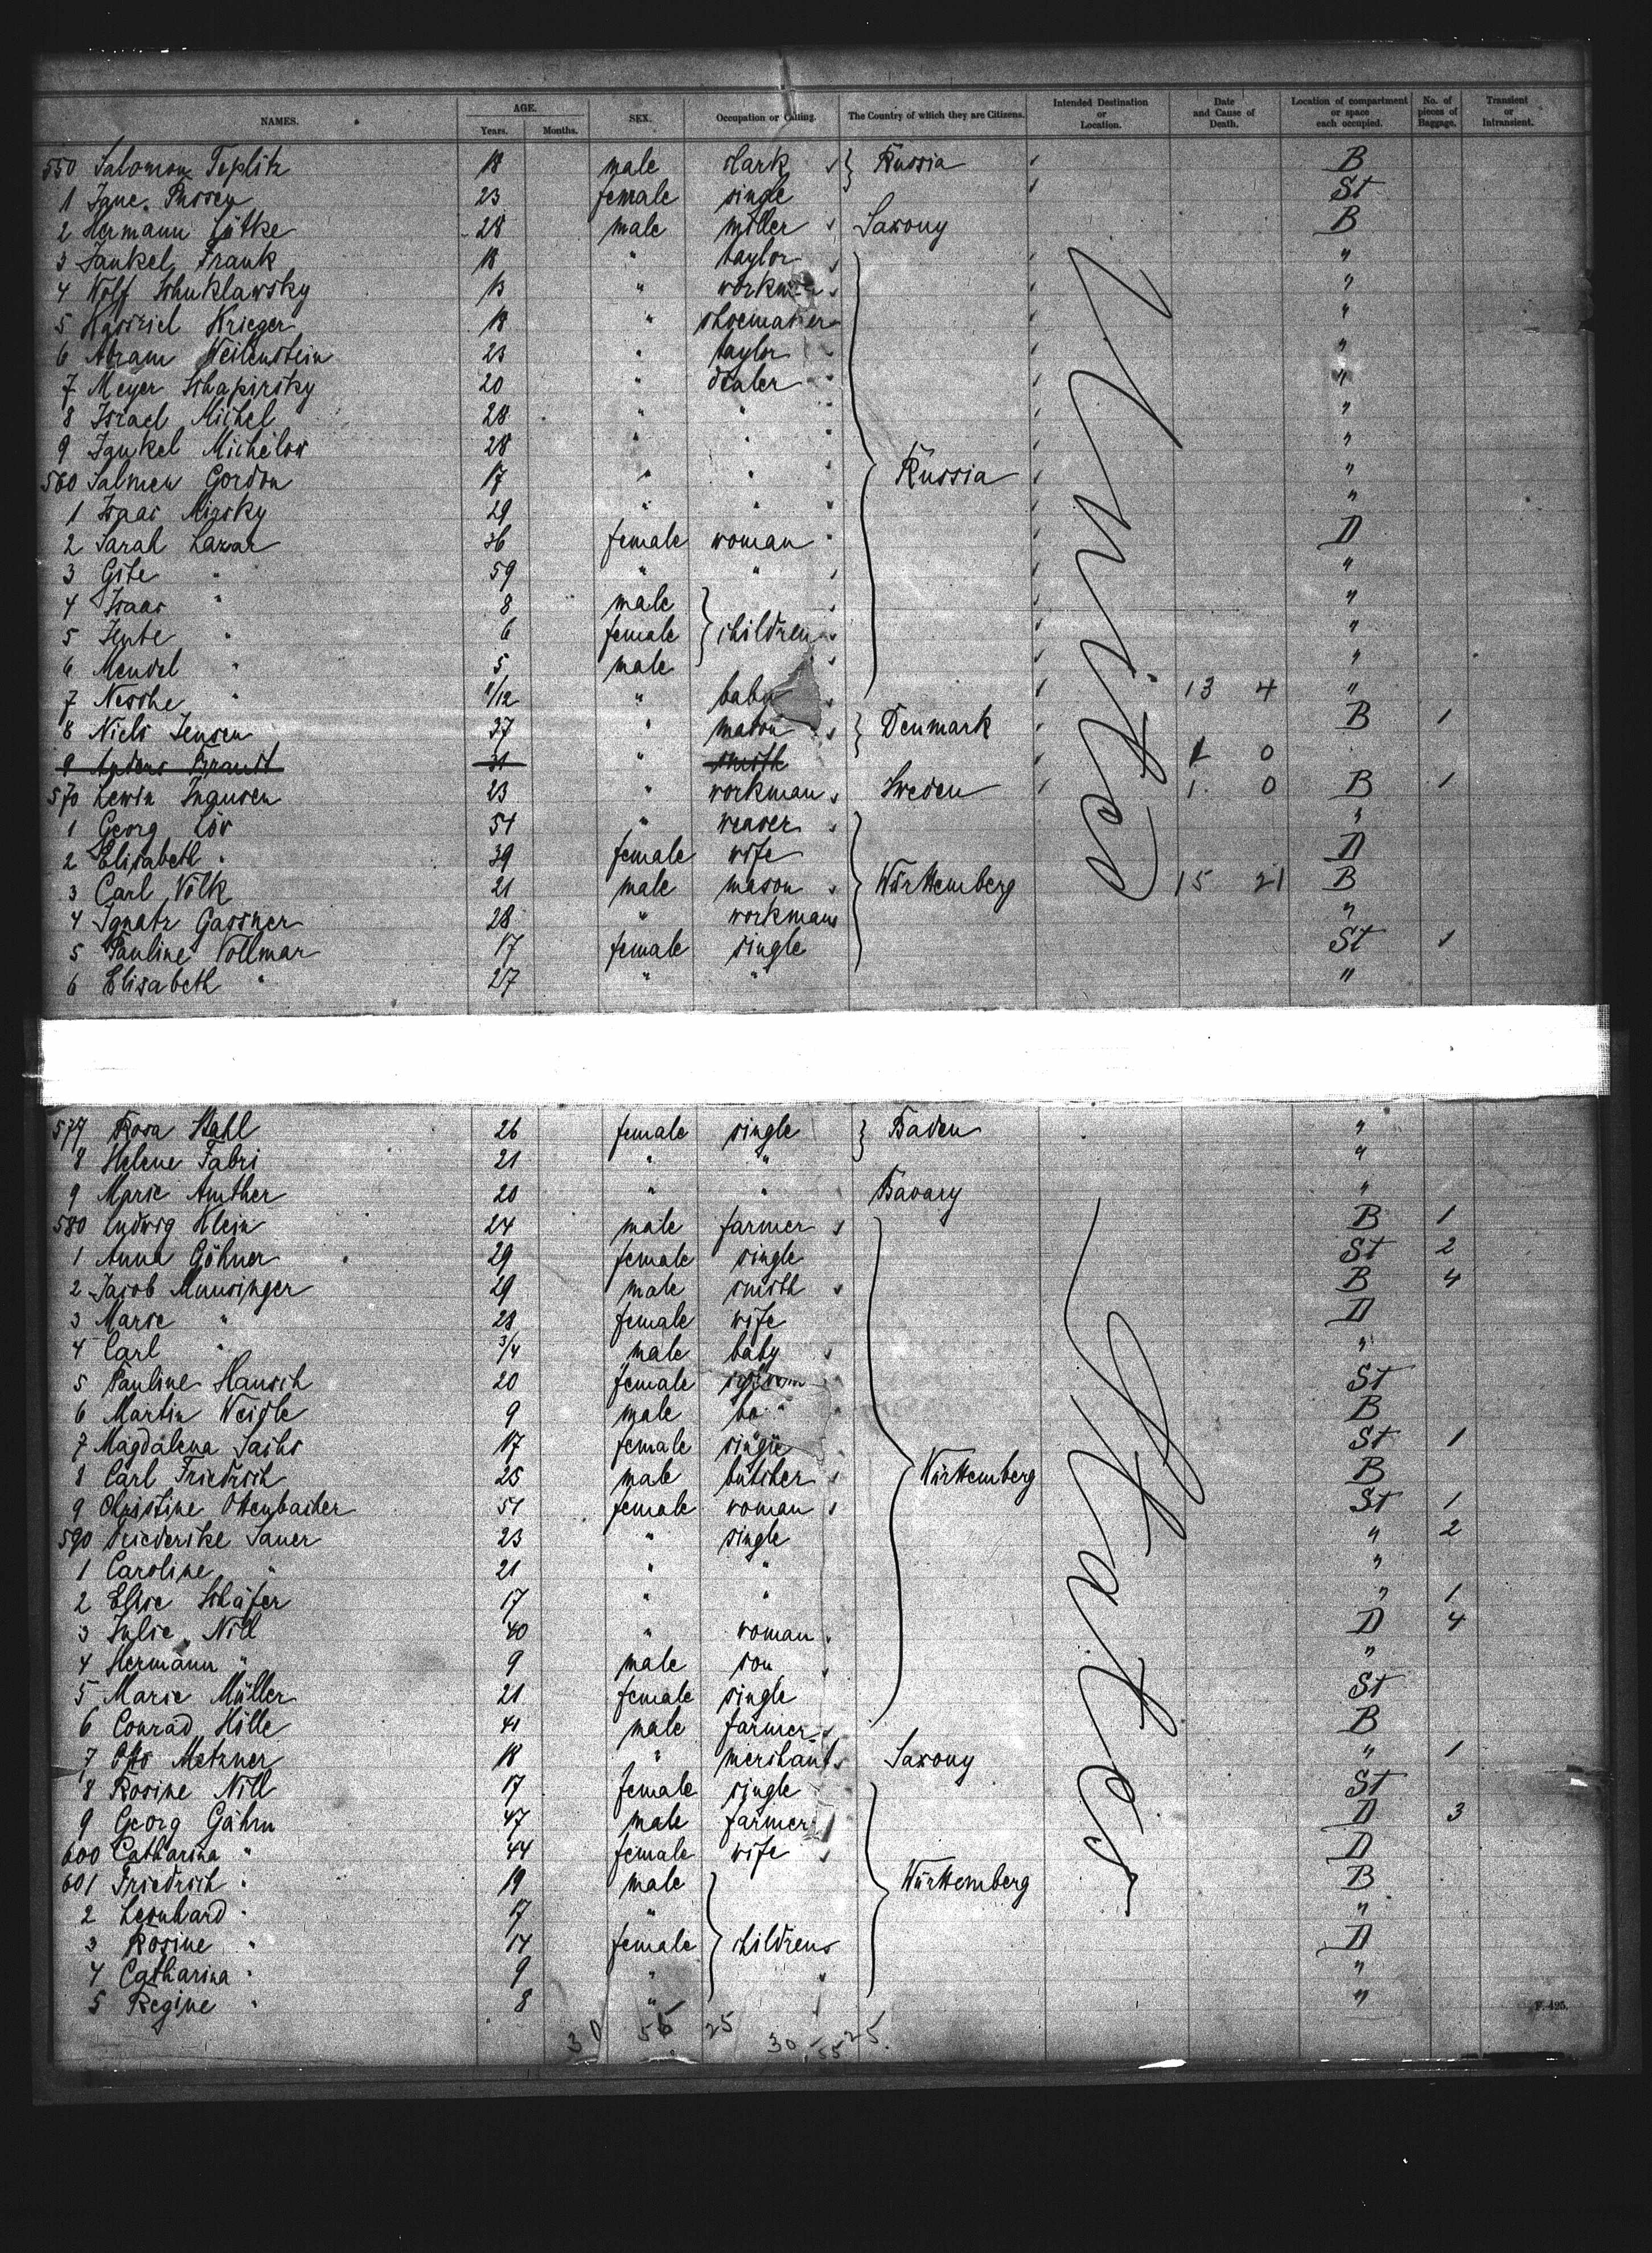 NAMES. AGE. Years. Months. SEX. Occupation or Calling. The Country of which they are Citizens. Intended Destination or Location. Date and Cause of Death. Location of compartment or space each occupied. No. of pieces of Baggage. Transient or Intransient.
550 Salomon Teplitz 18 male clark Russia B
1 23 female single St
2 Hermann Lütke 28 male miller Saxony B
3 Jankel Frank 18 " taylor "
4 Wolf Schuklawsky 13 " "
5 Kasriel Krieger 18 " shoemaker "
6 Abram Weilenstein 23 " taylor "
7 Meyer Schapirsky 20 " dealer "
8 Israel Michel 28 " " "
9 Jankel Michelow 28 " " "
560 Salmen Gordon 17 " " Russia "
1 Isaac Mirsky 29 " " "
2 Sarah Lazar 36 female woman D
3 Gite " 59 " " "
4 Isaac " 8 male "
5 Jente " 6 female children "
6 Mendel " 5 male "
7 Nesche " 11/12 " baby 13 4 "
8 Niels Jensen 37 " mason Denmark B 1
9 Anders Brandt 31 " smith 1 0
570 Lewin Ingusen 23 " workman Sweden 1. 0 B 1
1 Georg Löv 54 " weaver "
2 Elisabeth " 39 female wife D
3 Carl Völk 21 male mason Württemberg 15 21 B
4 Ignatz Gassner 28 " workman "
5 Pauline Vollmar 17 female single St 1
6 Elisabeth " 27 " " "
577 Rosa Stahl 26 female single Baden "
8 Helene Fabri 21 " " "
9 Marie Amther 20 " " Bavary "
580 Ludwig Klein 24 male farmer B 1
1 Anna Göhner 29 female single St 2
2 Jacob Munsinger 29 male smith B 4
3 Marie " 28 female wife D
4 Carl " 3/4 male baby "
5 Pauline Hansch 20 female St
6 Martin Weigle 9 male B
7 Magdalena Sachs 17 female single St 1
8 Carl Friedrich 25 male butcher Württemberg B
9 Christine Ottenbacher 51 female woman St 1
590 Friederike Sauer 23 " single " 2
1 Caroline " 21 " " "
2 Elise Schäfer 17 " " " 1
3 Julie Nill 40 " woman D 4
4 Hermann " 9 male son "
5 Marie Müller 21 female single St
6 Conrad Hille 41 male farmer B
7 Otto Metzner 18 " merchant Saxony " 1
8 Rosine Nill 17 female single St
9 Georg Gähm 47 male farmer D 3
600 Catharina " 44 female wife D
601 Friedrich " 19 male Württemberg B
2 Leonhard " 17 " "
3 Rosine " 14 female children D
4 Catharina " 9 " "
5 Regine " 8 " "
F. 425.
30 55 25 30 55 25.